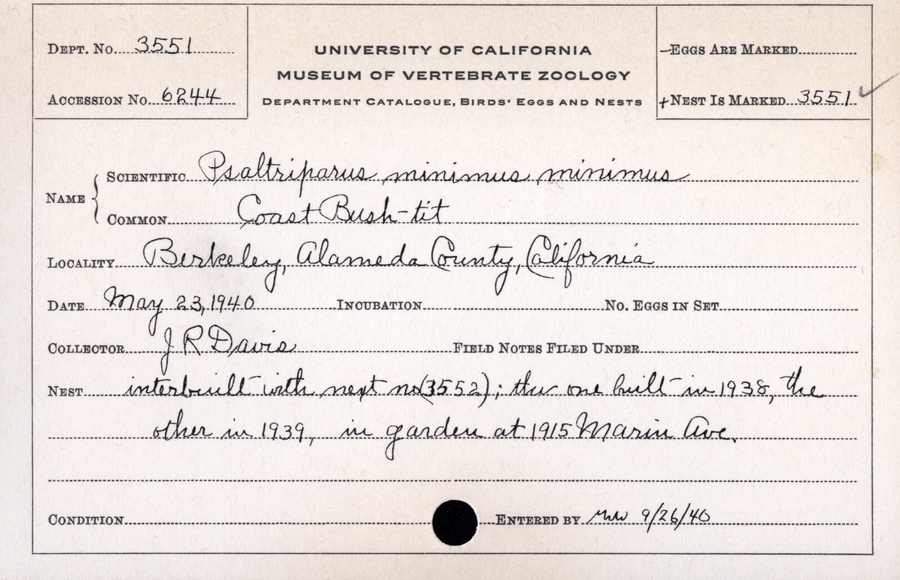 DEPT. NO. 3551
ACCESSION NO. 6244
UNIVERSITY OF CALIFORNIA
MUSEUM OF VERTEBRATE ZOOLOGY
DEPARTMENT CATALOGUE, BIRDS' EGGS AND NESTS
–EGGS ARE MARKED
+NEST IS MARKED 3551 ✓
NAME
SCIENTIFIC Psaltriparus minimus minimus
COMMON Coast Bush-tit
LOCALITY Berkeley, Alameda County, California
DATE May 23, 1940 INCUBATION NO. EGGS IN SET
COLLECTOR J R Davis FIELD NOTES FILED UNDER
NEST interbuilt with next no (3552); this one built in 1938, the
other in 1939, in garden at 1915 Marin Ave.
CONDITION ENTERED BY 9/26/40